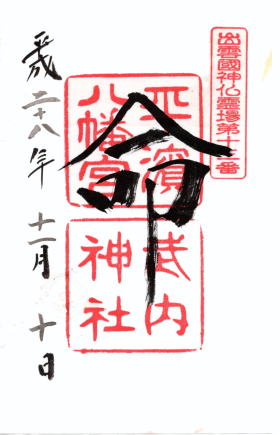 出雲國神仏霊場第十二番
平濱
八幡宮
武内
神社
命
平成二十八年 十一月 十日